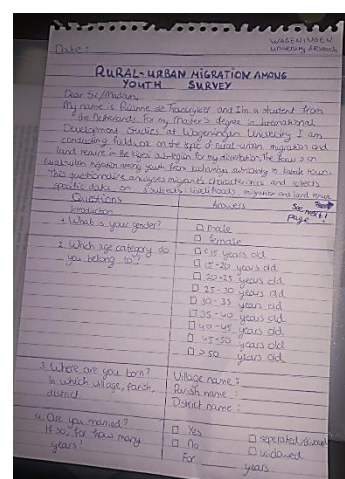 Date:
WAGENINGEN
University & Research
RURAL-URBAN MIGRATION AMONG
YOUTH SURVEY
Dear Sir/Madam,
My name is Rianne and I'm a student from
the Netherlands. For my Master's degree in International
Development Studies at Wageningen University I am
conducting fieldwork on the topic of rural-urban migration and
land tenure in the region for my dissertation. The focus is on
migration among youth from to town.
This questionnaire analyses migrants characteristics and collects
specific data on 3 subjects: livelihoods, migration and land tenure
Questions
Answers
See next
page!
Introduction
1. What is your gender?
□ male
□ female
2. Which age category do
you belong to?
□ <15 years old
□ 15-20 years old
□ 20-25 years old
□ 25-30 years old
□ 30-35 years old
□ 35-40 years old
□ 40-45 years old
□ 45-50 years old
□ >50 years old
3. Where are you born?
In which village, parish,
district
Village name:
Parish name:
District name:
4. Are you married?
If so, for how many
years?
□ Yes
□ No
□ seperated/
□ widowed
For years